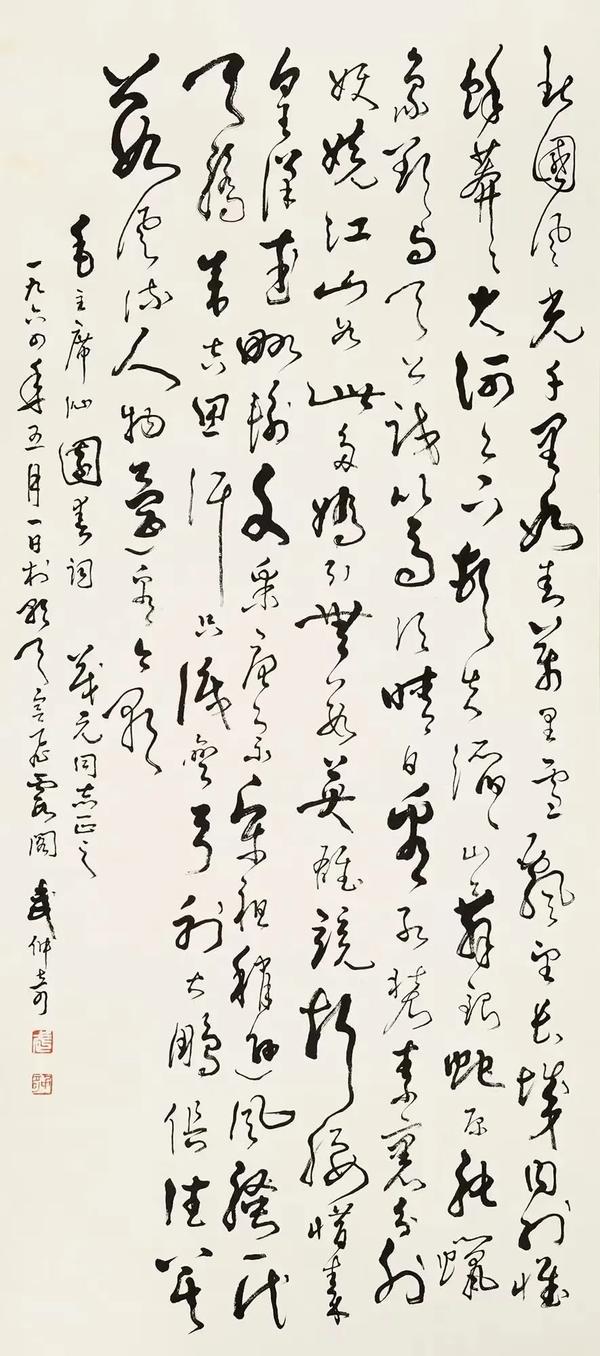 北國風光千里冰封萬里雪飄望長城內外惟
餘莽々大河上下頓失滔々山舞銀蛇原馳蠟
象欲與天公試比高須晴日看紅裝素裹分外
妖嬈江山如此多嬌引無數英雄競折腰惜秦
皇漢武略輸文采唐宗宋祖稍遜風騷一代
天驕成吉思汗只識彎弓射大鵰俱往矣
數風流人物還看今朝
毛主席沁園春詞 茂元同志正之
一九六四年五月一日於朝天宮飛霞閣 武仲奇